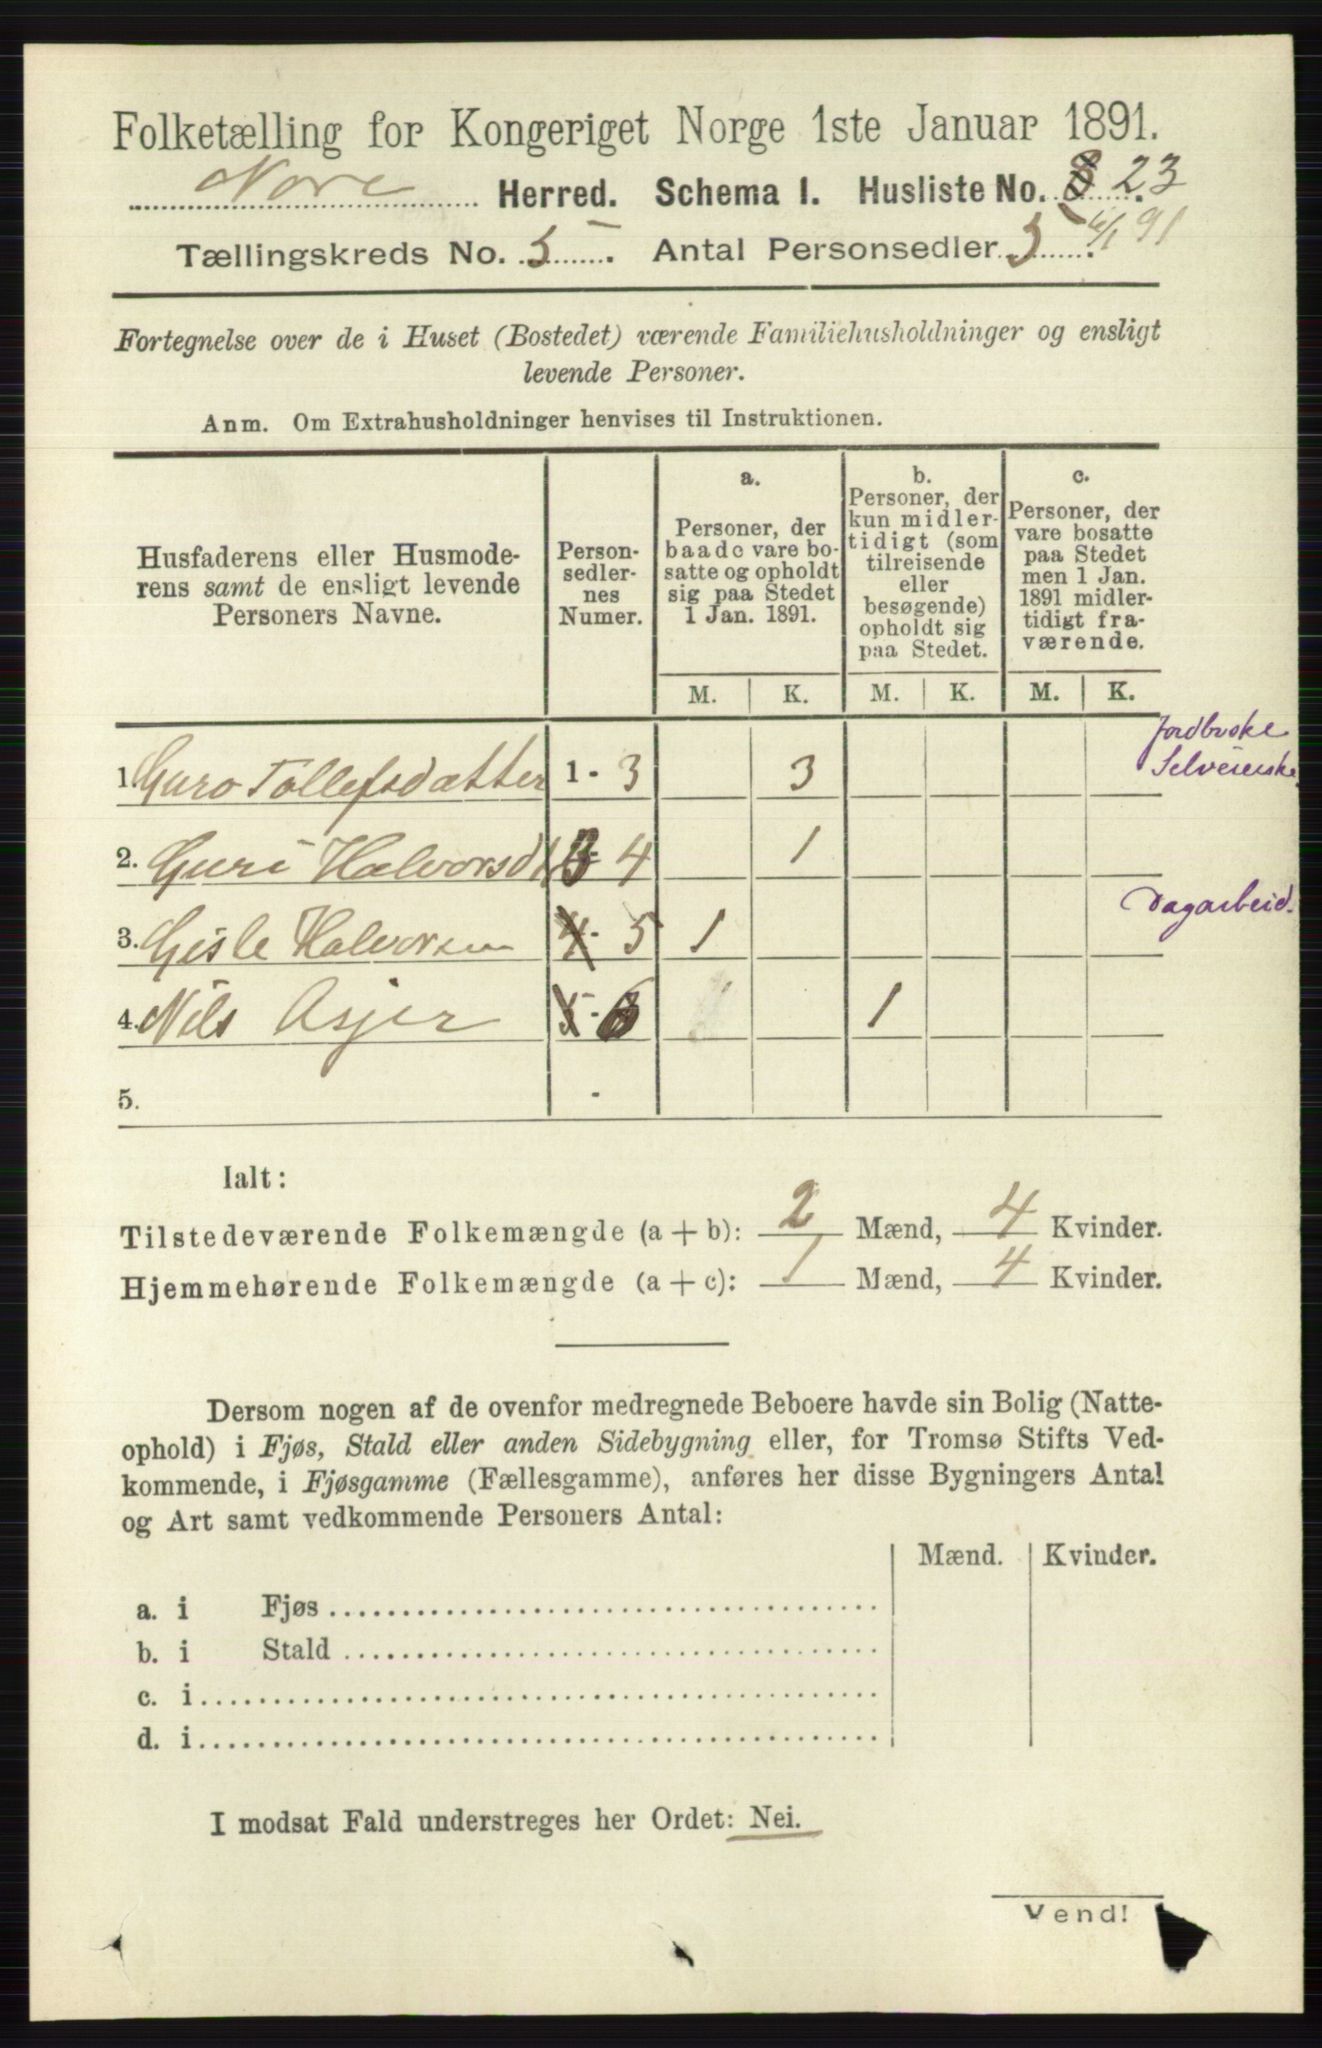 Folketælling for Kongeriget Norge 1ste Januar 1891.
Nore Herred. Schema I. Husliste No. 8 23
Tællingskreds No. 5. Antal Personsedler 5 6/1 91
Fortegnelse over de i Huset (Bostedet) værende Familiehusholdninger og ensligt
levende Personer.
Anm. Om Extrahusholdninger henvises til Instruktionen.
Husfaderens eller Husmode-
rens samt de ensligt levende
Personers Navne.
Person-
sedler-
nes
Numer.
a.
Personer, der
baade vare bo-
satte og opholdt
sig paa Stedet
1 Jan. 1891.
b.
Personer, der
kun midler-
tidigt (som
tilreisende
eller
besøgende)
opholdt sig
paa Stedet.
c.
Personer, der
vare bosatte
paa Stedet
men 1 Jan.
1891 midler-
tidigt fra-
værende.
M. K. M. K. M. K.
Jordbruske
Selveierske
1. Guro Tollefsdatter 1 - 3 3
2. Guri Halvorsd 4 1
Dagarbeid.
3. Gisle Halvorsen 4 - 5 1
4. Nils Asjer 5 - 6 1
5. -
Ialt:
Tilstedeværende Folkemængde (a + b): 2 Mænd, 4 Kvinder.
Hjemmehørende Folkemængde (a + c): 1 Mænd, 4 Kvinder.
Dersom nogen af de ovenfor medregnede Beboere havde sin Bolig (Natte-
ophold) i Fjøs, Stald eller anden Sidebygning eller, for Tromsø Stifts Ved-
kommende, i Fjøsgamme (Fællesgamme), anføres her disse Bygningers Antal
og Art samt vedkommende Personers Antal:
Mænd. Kvinder.
a. i Fjøs
b. i Stald
c. i
d. i
I modsat Fald understreges her Ordet: Nei.
Vend!